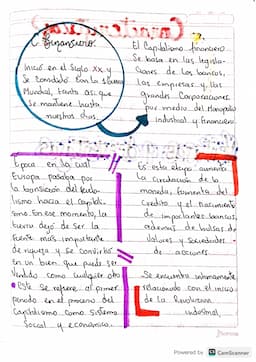 C. Financiero.
Inició en el Siglo XX y
Se consolidó con la II Guerra
Mundial, tanto así que
Se mantiene hasta
nuestros días.
El Capitalismo financiero
Se basa en las legisla-
ciones de los bancos,
las empresas y las
grandes Corporaciones
por medio del Monopolio
Industrial y Financiero
Época en la cual
Europa pasaba por
la transición del feuda-
lismo hacia el capitalis-
mo. En ese momento, la
tierra dejó de ser la
fuente más importante
de riqueza y se convirtió
en un bien que puede ser
Vendido como cualquier otro
• Este se refiere al primer
periodo en el proceso del
Capitalismo como sistema
Social y económico.
En esta etapa aumenta
la circulación de la
moneda, fomento del
Crédito y el nacimiento
de importantes bancos,
además de bolsas de
valores y Sociedades
de acciones.
Se encuentra íntimamente
relacionado con el inicio
de la Revolución
industrial.
Powered by CS CamScanner